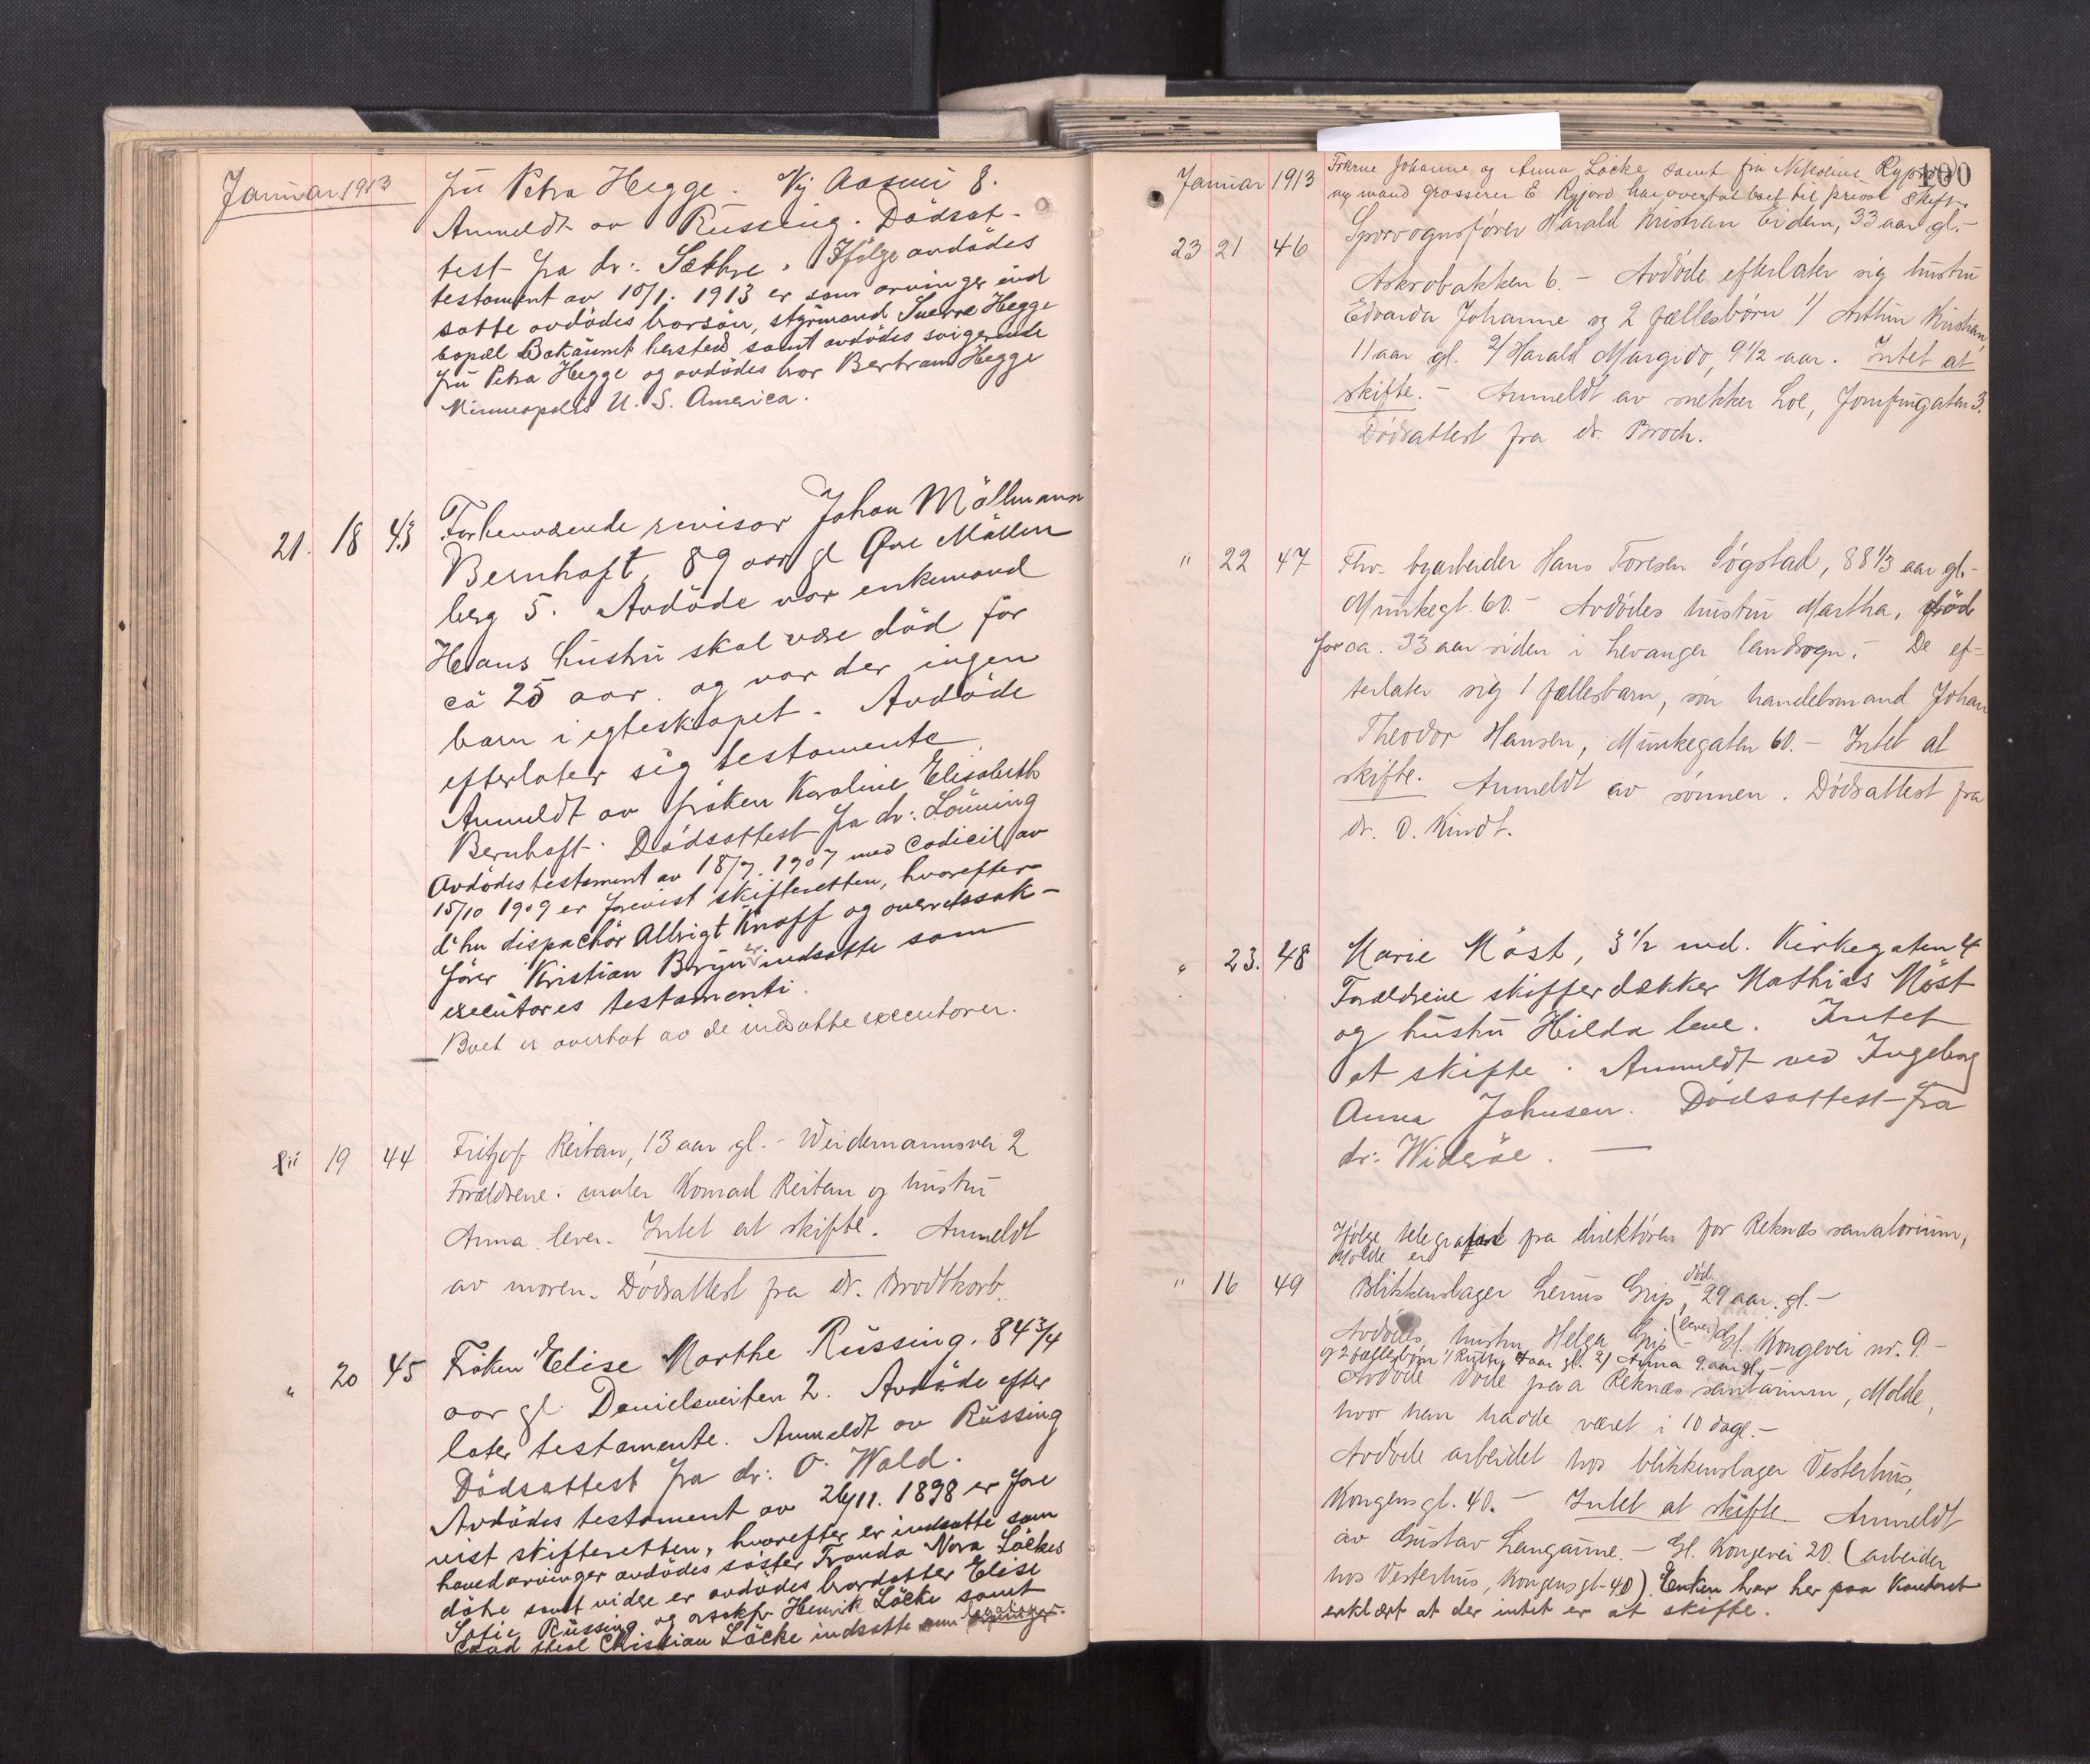 Januar 1913
fru Petra Hegge. Ny Aasvei 8.
Anmeldt av Russing. Dödsat-
test fra dr: Sæthre. Ifölge avdödes
testament av 10/1. 1913 er som arvinger ind
satte avdödes brorsön, styrmand Sverre Hegge
bopæl Bakaunet hersted samt avdödes svigerinde
fru Petra Hegge og avdödes bror Bertram Hegge
Minneapolis U. S. America.
21. 18 43 Forhenværende revisor Johan Möllmann
Bernhoft, 89 aar gl Øvre Möllen
berg 5. Avdöde var enkemand
Hans hustru skal være död for
ca 25 aar. og var der ingen
barn i egteskapet. Avdöde
efterlater sig testamente
Anmeldt av fröken Karoline Elisabeth
Bernhoft. Dödsattest fra dr: Lönning
Avdödes testament av 18/7. 1907 med codicil av
15/10 1909 er forevist skifteretten, hvorefter
d'hr dispachör Albrigt Knoff og overretssak-
förer Kristian Bryn er indsatte som
executores testamenti.
Boet er overtat av de indsatte executorer.
19 44 Fritjof Reitan, 13 aar gl. - Weidemannsvei 2
Forældrene: maler Konrad Reitan og hustru
Anna lever. Intet at skifte. Anmeldt
av moren. Dödsattest fra dr. Brodtkorb.
" 20 45 Fröken Elise Marthe Russing. 84 3/4
aar gl. Danielsveiten 2. Avdöde efter
later testamente. Anmeldt av Russing
Dödsattest fra dr: O. Wald.
Avdödes testament av 26/11. 1898 er fore
vist skifteretten, hvorefter er indsatte som
hovedarvinger avdödes söster Tranda Nora Löckes
döte samt videre er avdödes brordatter Elise
Sofie Russing og orsakfr Henrik Löcke samt
cand theol Christian Löcke indsatte som
100
Januar 1913 Frkrne Johanne og Anna Löcke samt fru Nikoline Ryjord
og mand grosserer E Ryjord har overtat boet til privat skifte.
23 21 46 Sporvognsfører Harald Kristian Eidem, 33 aar gl. -
Askrobakken 6. - Avdøde efterlater sig hustru
Edvarda Johanne og 2 fællesbørn 1/ Arthur Kristian,
11 aar gl. 2/ Harald Margido, 9 1/2 aar. Intet at
skifte. - Anmeldt av snekker Loe, Jomfrugaten 3.
Dødsattest fra dr. Broch.
" 22 47 Fhv. byarbeider Hans Toresen Søgstad, 88 1/3 aar gl. -
Munkegt. 60. - Avdødes hustru Martha, død
for ca. 33 aar siden i Levanger landsogn. - De ef-
terlater sig 1 fællesbarn, søn handelsmand Johan
Theodor Hansen, Munkegaten 60. - Intet at
skifte. Anmeldt av sønnen. Dødsattest fra
dr. O. Kindt.
" 23. 48 Marie Möst, 3 1/2 md. Kirkegaten 4
Forældrene skifferdækker Mathias Möst
og hustru Hilda leve. Intet
at skifte. Anmeldt ved Ingeborg
Anna Johnsen. Dödsattest fra
dr: Wideröe.
Ifølge telegrafert fra direktøren for Reknæs sanatorium,
Molde er
" 16 49 Blikkenslager Lenus Grip, død. 29 aar. gl. -
Avdødes hustru Helga Grip (lever) Gl. Kongevei nr. 9 -
og 2 fællesbørn 1/ Ruth, 4 aar gl. 2/ Anna 2 aar gl. -
Avdøde døde paa Reknæs sanitarium, Molde,
hvor han hadde været i 10 dage. -
Avdøde arbeidet hos blikkenslager Vesterhus,
Kongensgt. 40. - Intet at skifte. Anmeldt
av Gustav Langaune. - Gl. Kongevei 20. (arbeider
hos Vesterhus, Kongensgt-40). Enken har her paa kontoret
erklært at der intet er at skifte.